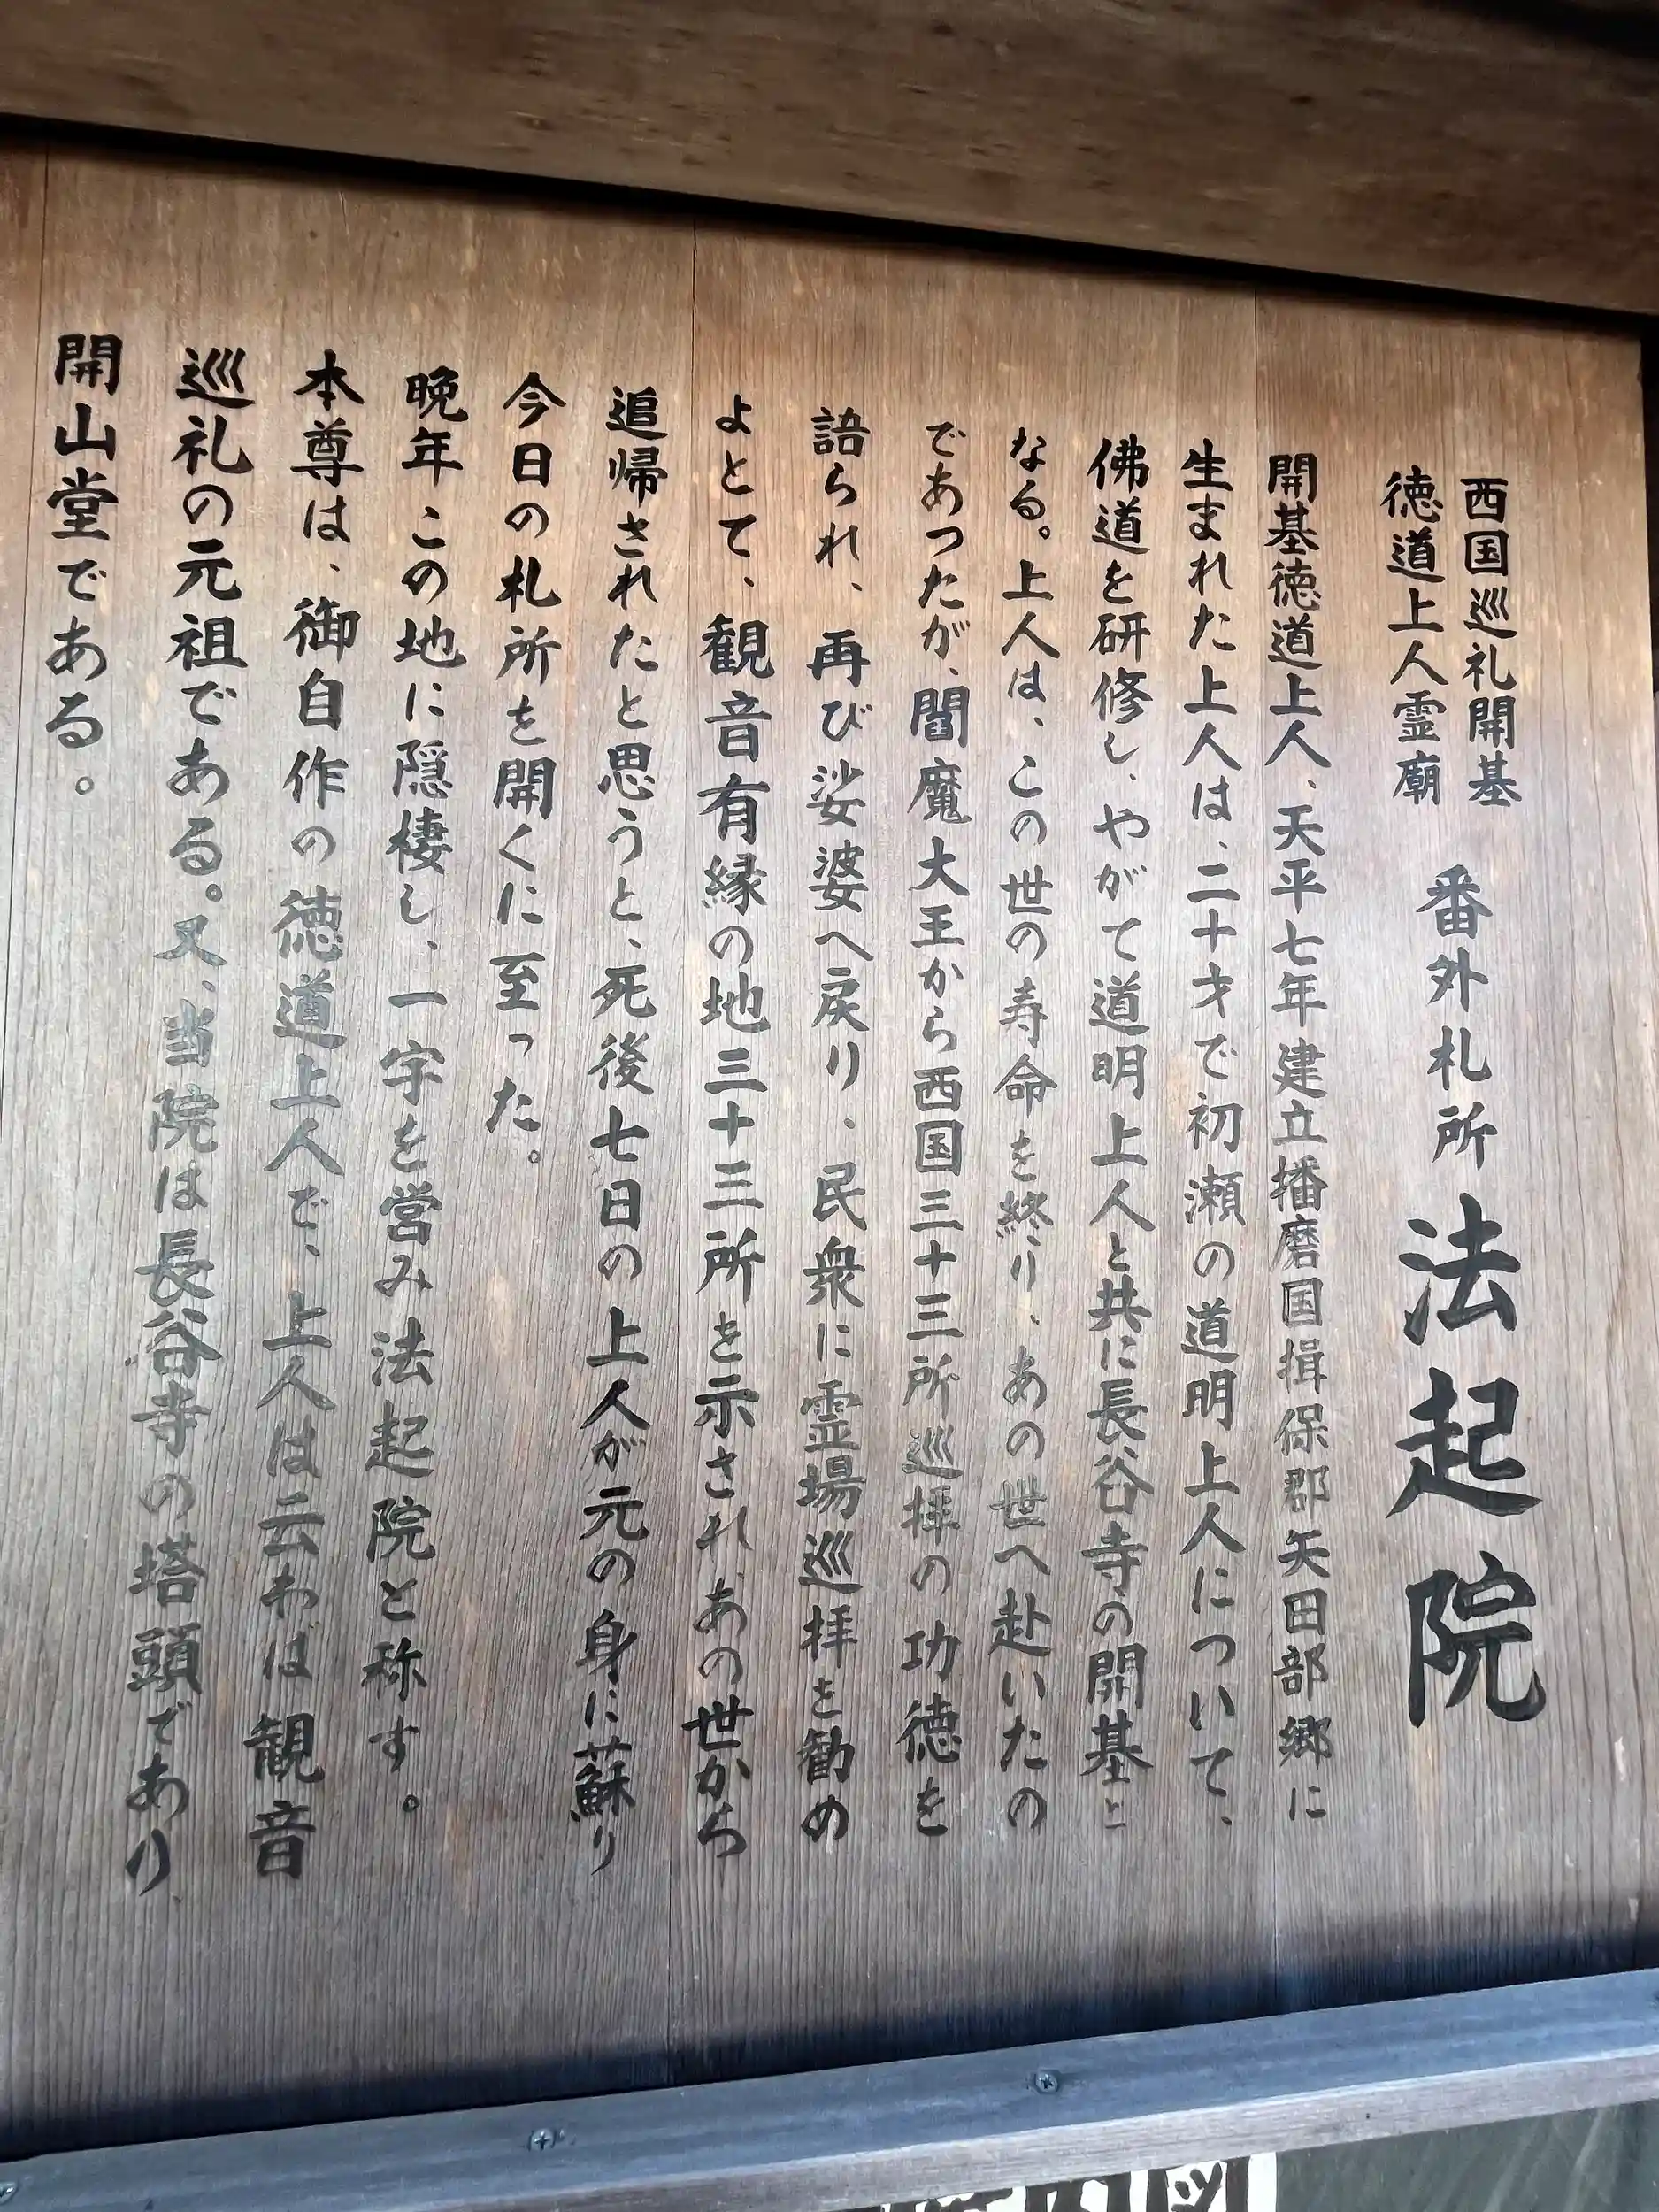 西国巡礼開基
徳道上人霊廟
番外札所 法起院
開基徳道上人、天平七年建立播磨国揖保郡矢田部郷に
生まれた上人は、二十才で初瀬の道明上人について、
佛道を研修し、やがて道明上人と共に長谷寺の開基と
なる。上人は、この世の寿命を終り、あの世へ赴いたの
であつたが、閻魔大王から西国三十三所巡拝の功徳を
語られ、再び娑婆へ戻り、民衆に霊場巡拝を勧め
よとて、観音有縁の地三十三所を示され、あの世から
追帰されたと思うと、死後七日の上人が元の身に蘇り
今日の札所を開くに至った。
晩年この地に隠棲し、一宇を営み法起院と称す。
本尊は、御自作の徳道上人で、上人は云わば観音
巡礼の元祖である。又、当院は長谷寺の塔頭であり、
開山堂である。